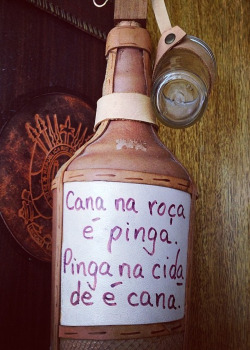 Cana na roça
é pinga.
Pinga na cida
de é cana.